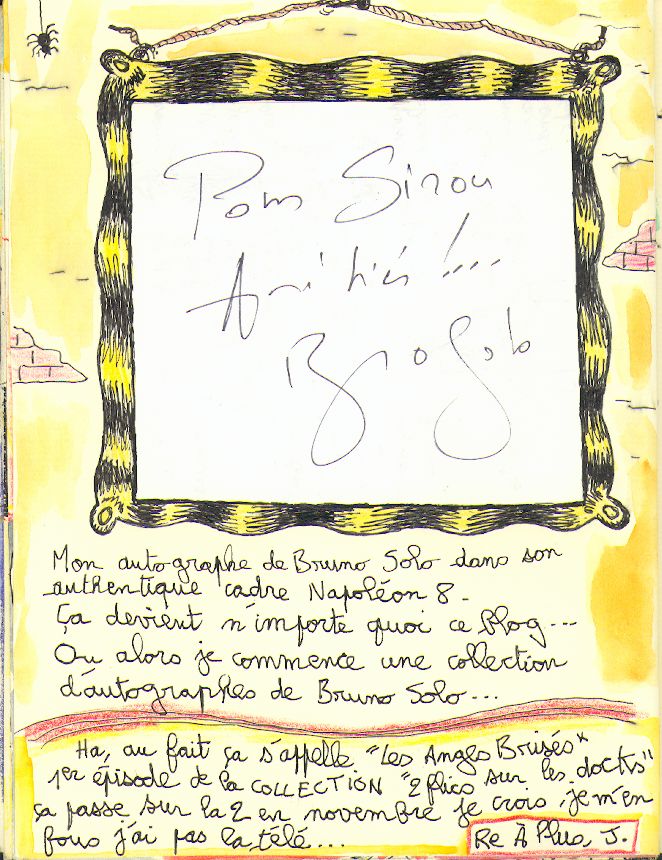 Pour Sirou
Amitiés !...
Bruno Solo
Mon autographe de Bruno Solo dans son
authentique cadre Napoléon 8.
Ça devient n'importe quoi ce blog...
Ou alors je commence une collection
d'autographes de Bruno Solo...
Ha, au fait ça s'appelle "Les Anges Brisés"
1er épisode de la COLLECTION "2 flics sur les docks"
ça passe sur la 2 en novembre je crois, je m'en
fous j'ai pas la télé...
Re À Plus, J.